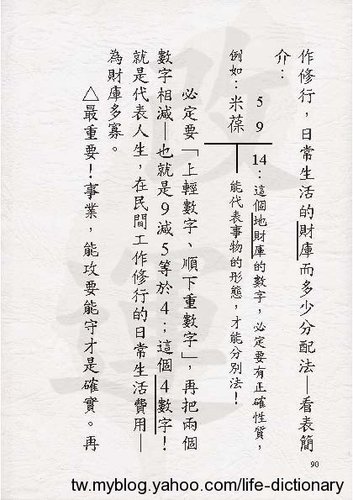 作修行，日常生活的財庫而多少分配法—看表簡
介：
5 9 14：這個地財庫的數字，必定要有正確性質，
例如：米葆 能代表事物的形態，才能分別法！
必定要「上輕數字、順下重數字」，再把兩個
數字相減—也就是9減5等於4；這個4數字！
就是代表人生，在民間工作修行的日常生活費用—
為財庫多寡。
△最重要！事業，能攻要能守才是確實。再
90
改運
tw.myblog.yahoo.com/life-dictionary